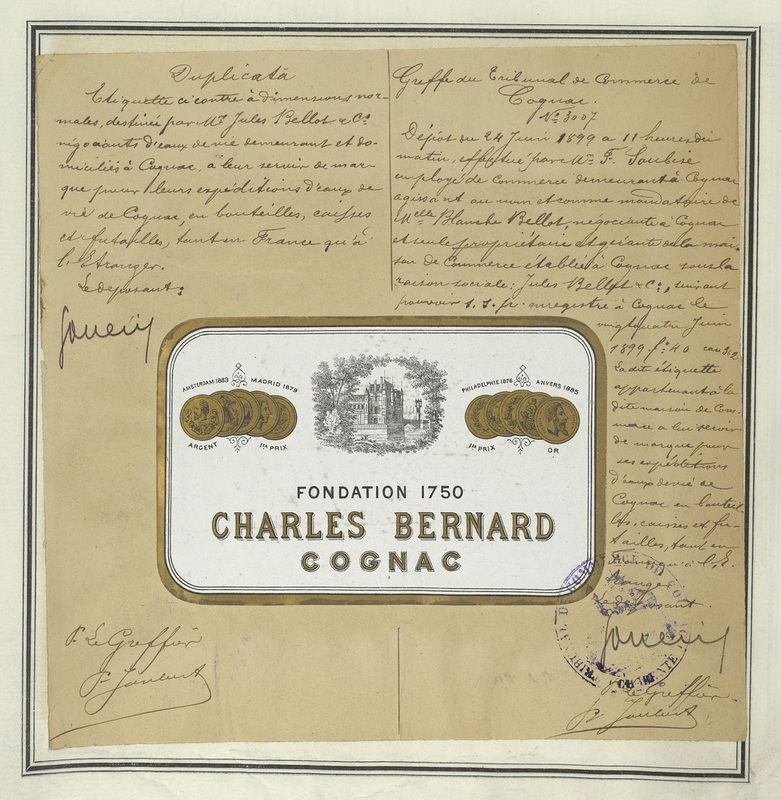 Duplicata
Etiquette ci contre à dimensions nor-
males, destinée par Mrs Jules Bellot & Co
négociants d'eaux de vie demeurant et do-
miciliés à Cognac, a leur servir de mar-
que pour leurs expéditions d'eaux de
vie de Cognac, en bouteilles, caisses
et futailles, tant en France qu'à
l'Etranger.
Le déposant,
P. Le Greffier
Greffe du Tribunal de Commerce de
Cognac.
No 3007
Dépôt du 24 Juin 1899 a 11 heures du
matin, effectué par Mr F. Soubise
employé de Commerce demeurant à Cognac
agissant au nom et comme mandataire de
Melle Blanche Bellot, négociante à Cognac
et seule propriétaire et gérante de la mai-
son de Commerce établie à Cognac sous la
raison sociale: Jules Bellot & Co, suivant
pouvoir s. s. p. enregistré à Cognac le
vingt quatre Juin
1899 fo 40
La dite étiquette
appartenant à la
dite maison de Com-
merce a lui servir
de marque pour
ses expéditions
d'eaux de vie de
Cognac en bouteil-
les, caisses et fu-
tailles, tant en
qu'à l'E-
tranger.
Le déposant.
P. Le Greffier
AMSTERDAM 1883
MADRID 1879
ARGENT
1er PRIX
PHILADELPHIE 1876
ANVERS 1885
1er PRIX
OR
FONDATION 1750
CHARLES BERNARD
COGNAC
TRIBUNAL DE CHARENTE